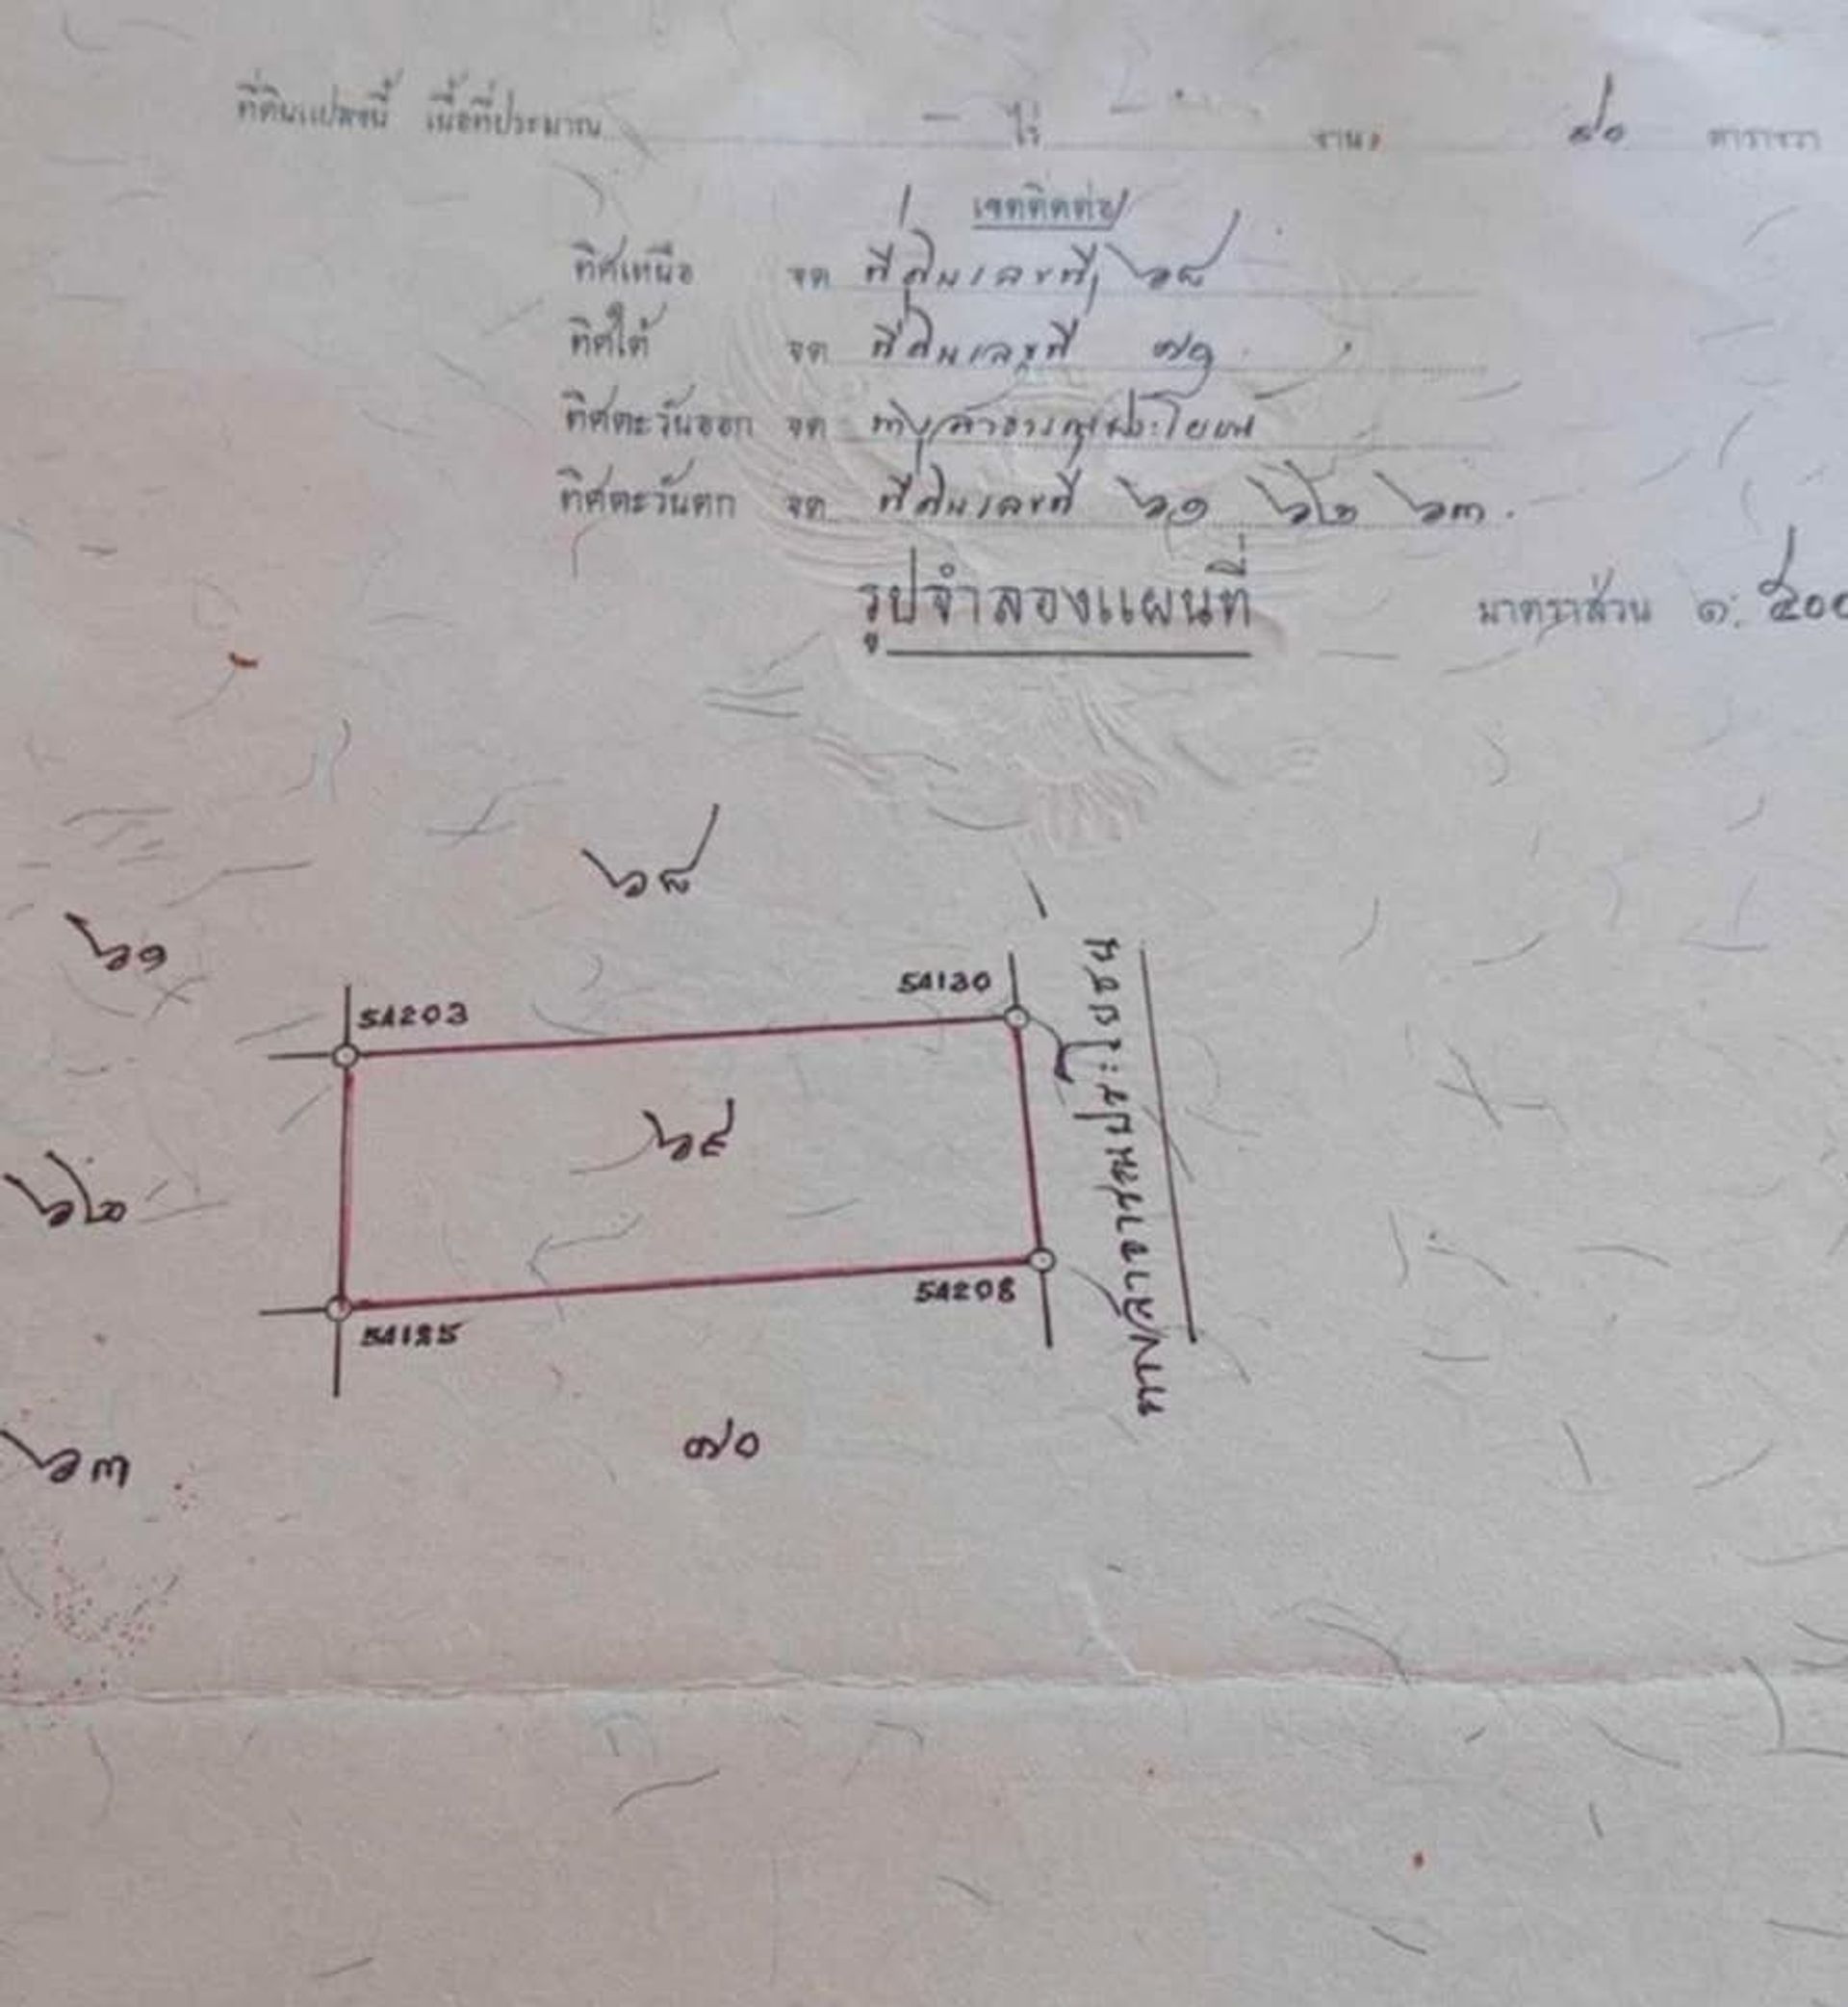 ที่ดินแปลงนี้ เนื้อที่ประมาณ - ไร่ - งาน ๘๐ ตารางวา
เขตติดต่อ
ทิศเหนือ จด ที่ดินเลขที่ ๖๘
ทิศใต้ จด ที่ดินเลขที่
ทิศตะวันออก จด ทางสาธารณประโยชน์
ทิศตะวันตก จด ที่ดินเลขที่ ๖๑ ๖๒ ๖๓
รูปจำลองแผนที่ มาตราส่วน ๑:
๖๘
๖๑
5A203
5A130
๖๙
๖๒
ทางสาธารณประโยชน์
5A208
5A125
๗๐
๖๓